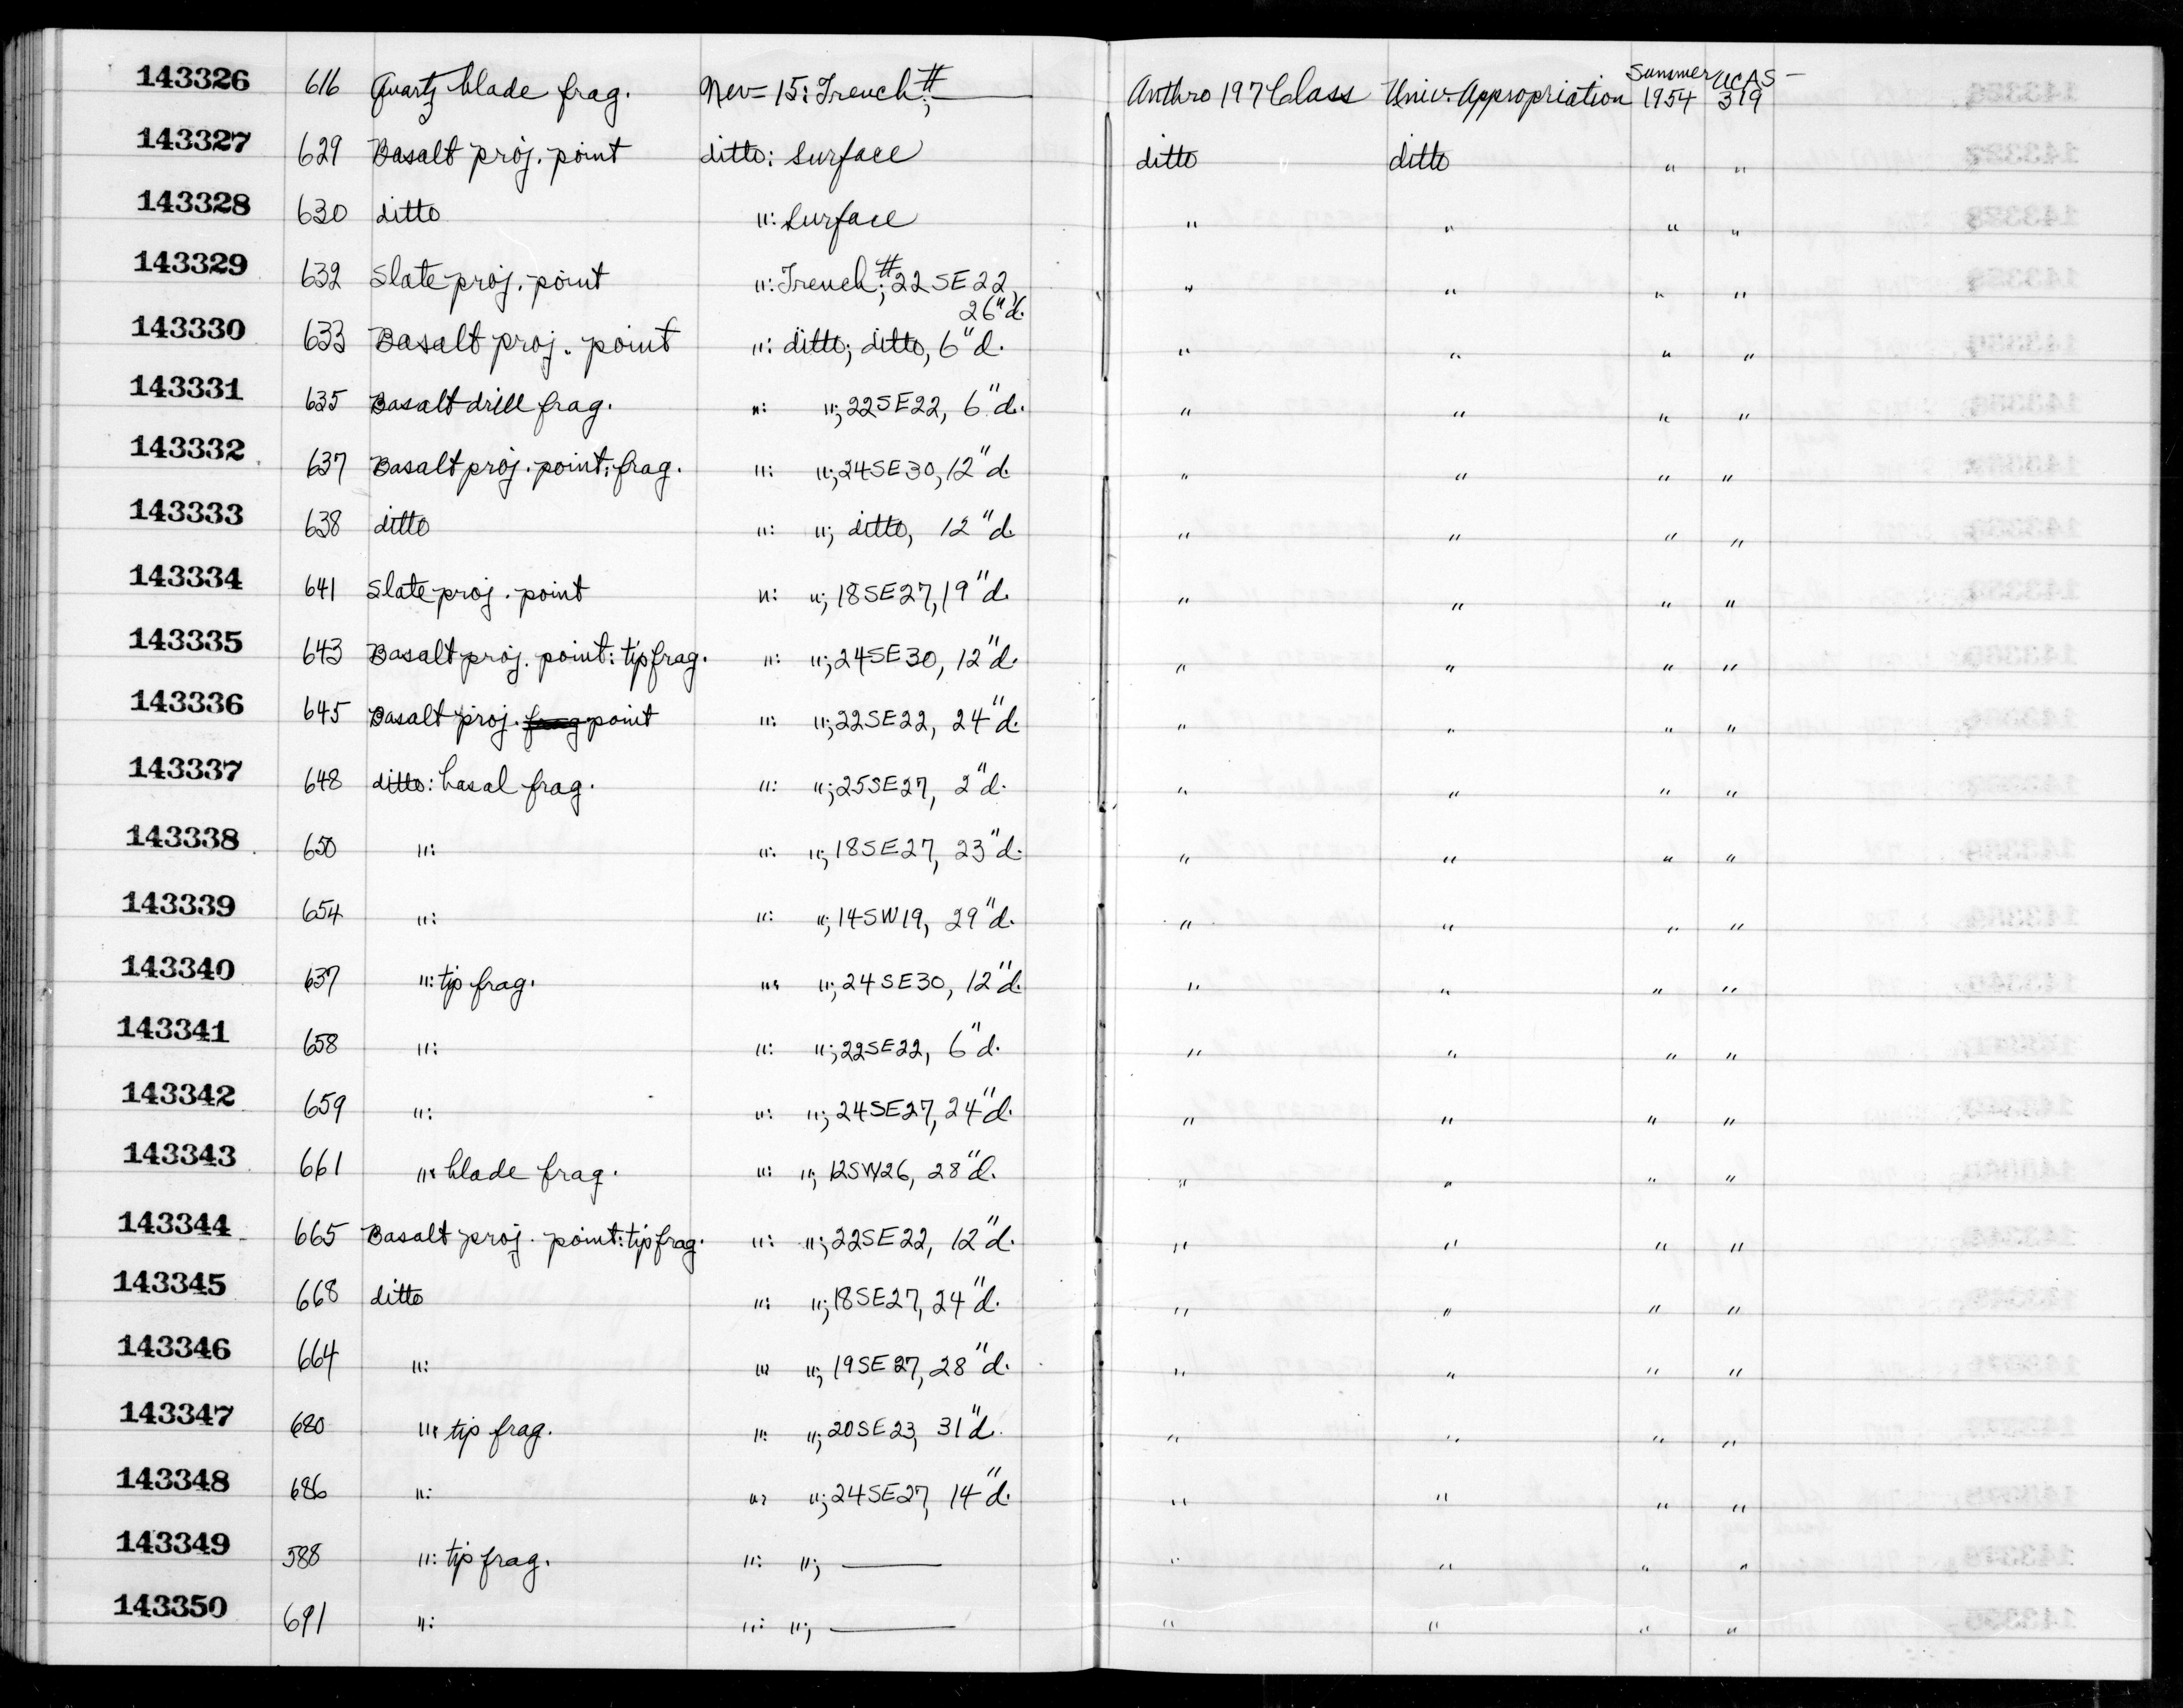 143326 616 Quartz blade frag. Nev-15: Trench #; — Anthro 197 Class Univ. Appropriation Summer 1954 UCAS-319
143327 629 Basalt proj. point ditto: Surface ditto ditto " "
143328 630 ditto ": Surface " " " "
143329 632 Slate proj. point ": Trench #; 22SE22, 26"d. " " " "
143330 633 Basalt proj. point ": ditto; ditto, 6"d. " " " "
143331 635 Basalt drill frag. ": "; 22SE22, 6"d. " " " "
143332 637 Basalt proj. point: frag. ": "; 24SE30, 12"d. " " " "
143333 638 ditto ": "; ditto, 12"d. " " " "
143334 641 Slate proj. point ": "; 18SE27, 19"d. " " " "
143335 643 Basalt proj. point: tip frag. ": "; 24SE30, 12"d. " " " "
143336 645 Basalt proj. frag point ": "; 22SE22, 24"d. " " " "
143337 648 ditto: basal frag. ": "; 25SE27, 2"d. " " " "
143338 650 ": ": "; 18SE27, 23"d. " " " "
143339 654 ": ": "; 14SW19, 29"d. " " " "
143340 637 ": tip frag. ": "; 24SE30, 12"d. " " " "
143341 658 ": ": "; 22SE22, 6"d. " " " "
143342 659 ": ": "; 24SE27, 24"d. " " " "
143343 661 ": blade frag. ": "; 12SW26, 28"d. " " " "
143344 665 Basalt proj. point: tip frag. ": "; 22SE22, 12"d. " " " "
143345 668 ditto ": "; 18SE27, 24"d. " " " "
143346 664 ": ": "; 19SE27, 28"d. " " " "
143347 680 ": tip frag. ": "; 20SE23, 31"d. " " " "
143348 686 ": ": "; 24SE27, 14"d. " " " "
143349 588 ": tip frag. ": "; — " " " "
143350 691 ": ": "; — " " " "